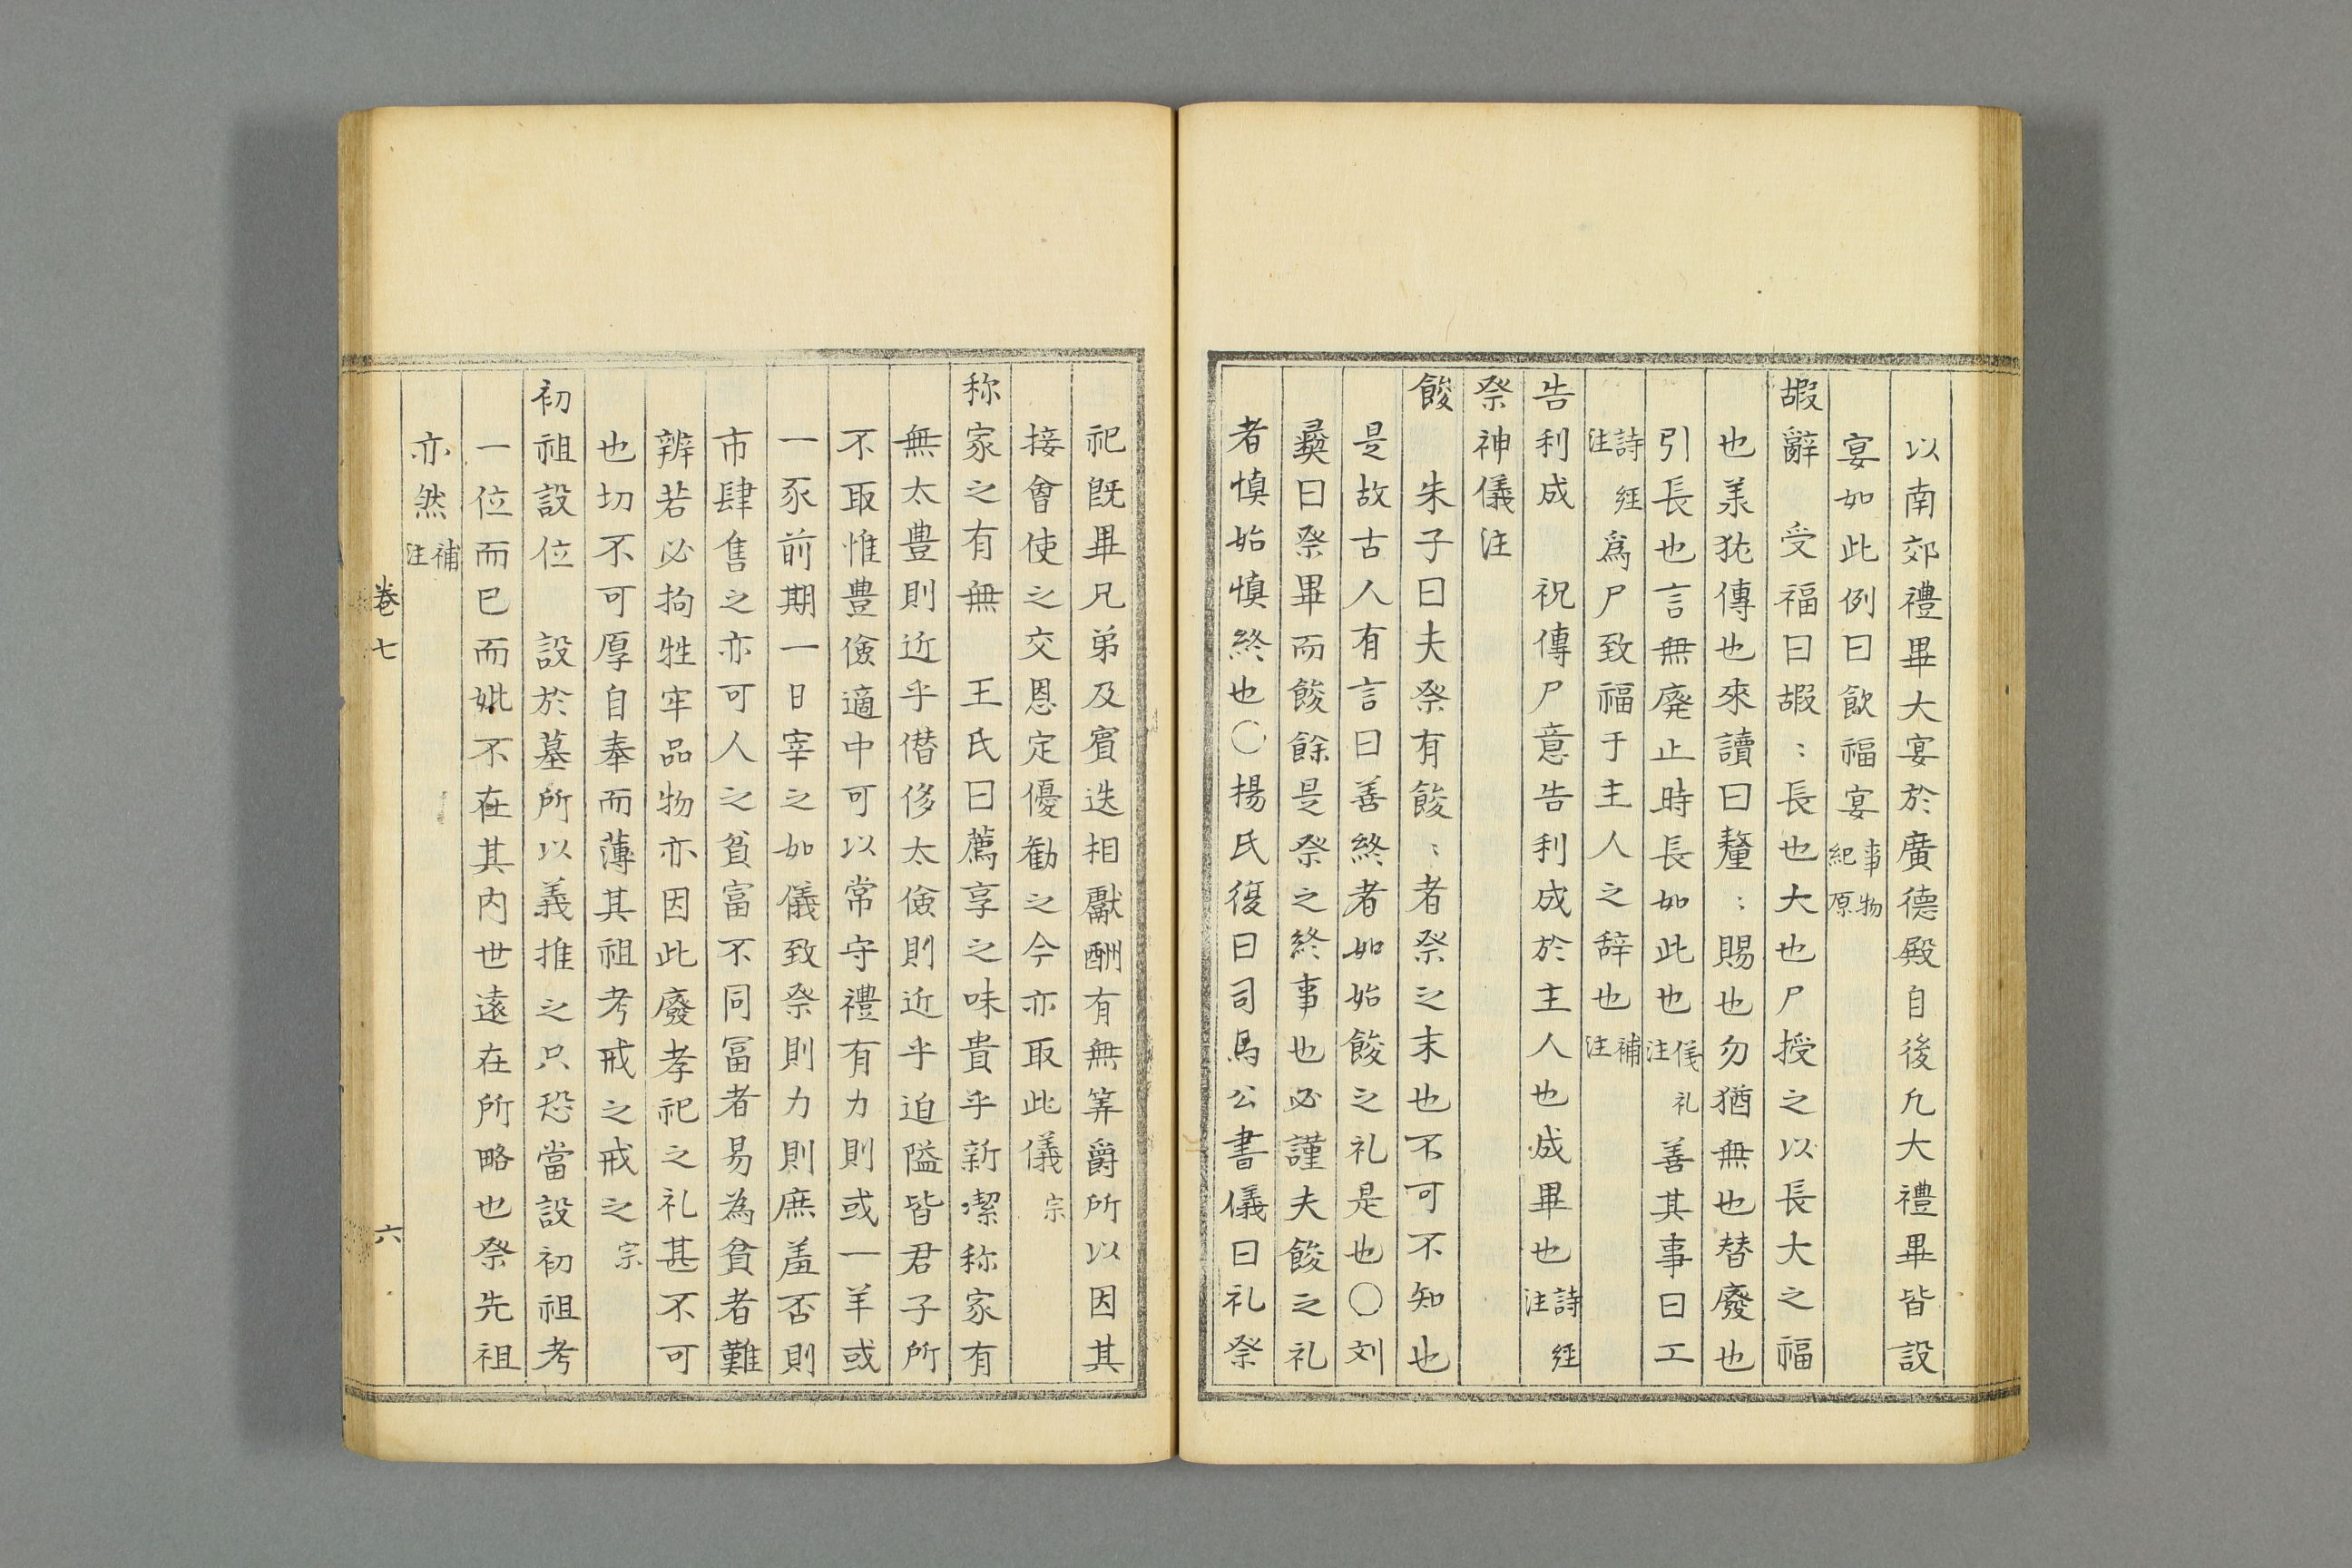 以南郊禮畢大宴於廣德殿自後凡大禮畢皆設
宴如此例曰飮福宴事物紀原
嘏辭　受福曰嘏〻長也大也尸授之以長大之福
也羕犹傳也來讀曰釐〻賜也勿猶無也替廢也
引長也言無廃止時長如此也儀礼注善其事曰工
詩経注爲尸致福于主人之辞也補注
告利成　祝傳尸意告利成於主人也成畢也詩経注
祭神儀注
餕　朱子曰夫祭有餕〻者祭之末也不可不知也
是故古人有言曰善終者如始餕之礼是也〇刘
彛曰祭畢而餕餘是祭之終事也必謹夫餕之礼
者慎始慎終也〇揚氏復曰司馬公書儀曰礼祭
祀旣畢兄弟及賓迭相獻酬有無筭爵所以因其
接會使之交恩定優勸之今亦取此儀宗
称家之有無　王氏曰薦享之味貴乎新潔称家有
無太豊則近乎僣侈太儉則近乎迫隘皆君子所
不取惟豊儉適中可以常守禮有力則或一羊或
一豕前期一日宰之如儀致祭則力則庶羞否則
市肆售之亦可人之貧富不同冨者易為貧者難
辨若必拘牲牢品物亦因此廢孝祀之礼甚不可
也切不可厚自奉而薄其祖考戒之戒之宗
初祖設位　設於墓所以義推之只恐當設初祖考
一位而巳而妣不在其内世遠在所略也祭先祖
亦然補注
卷七　六